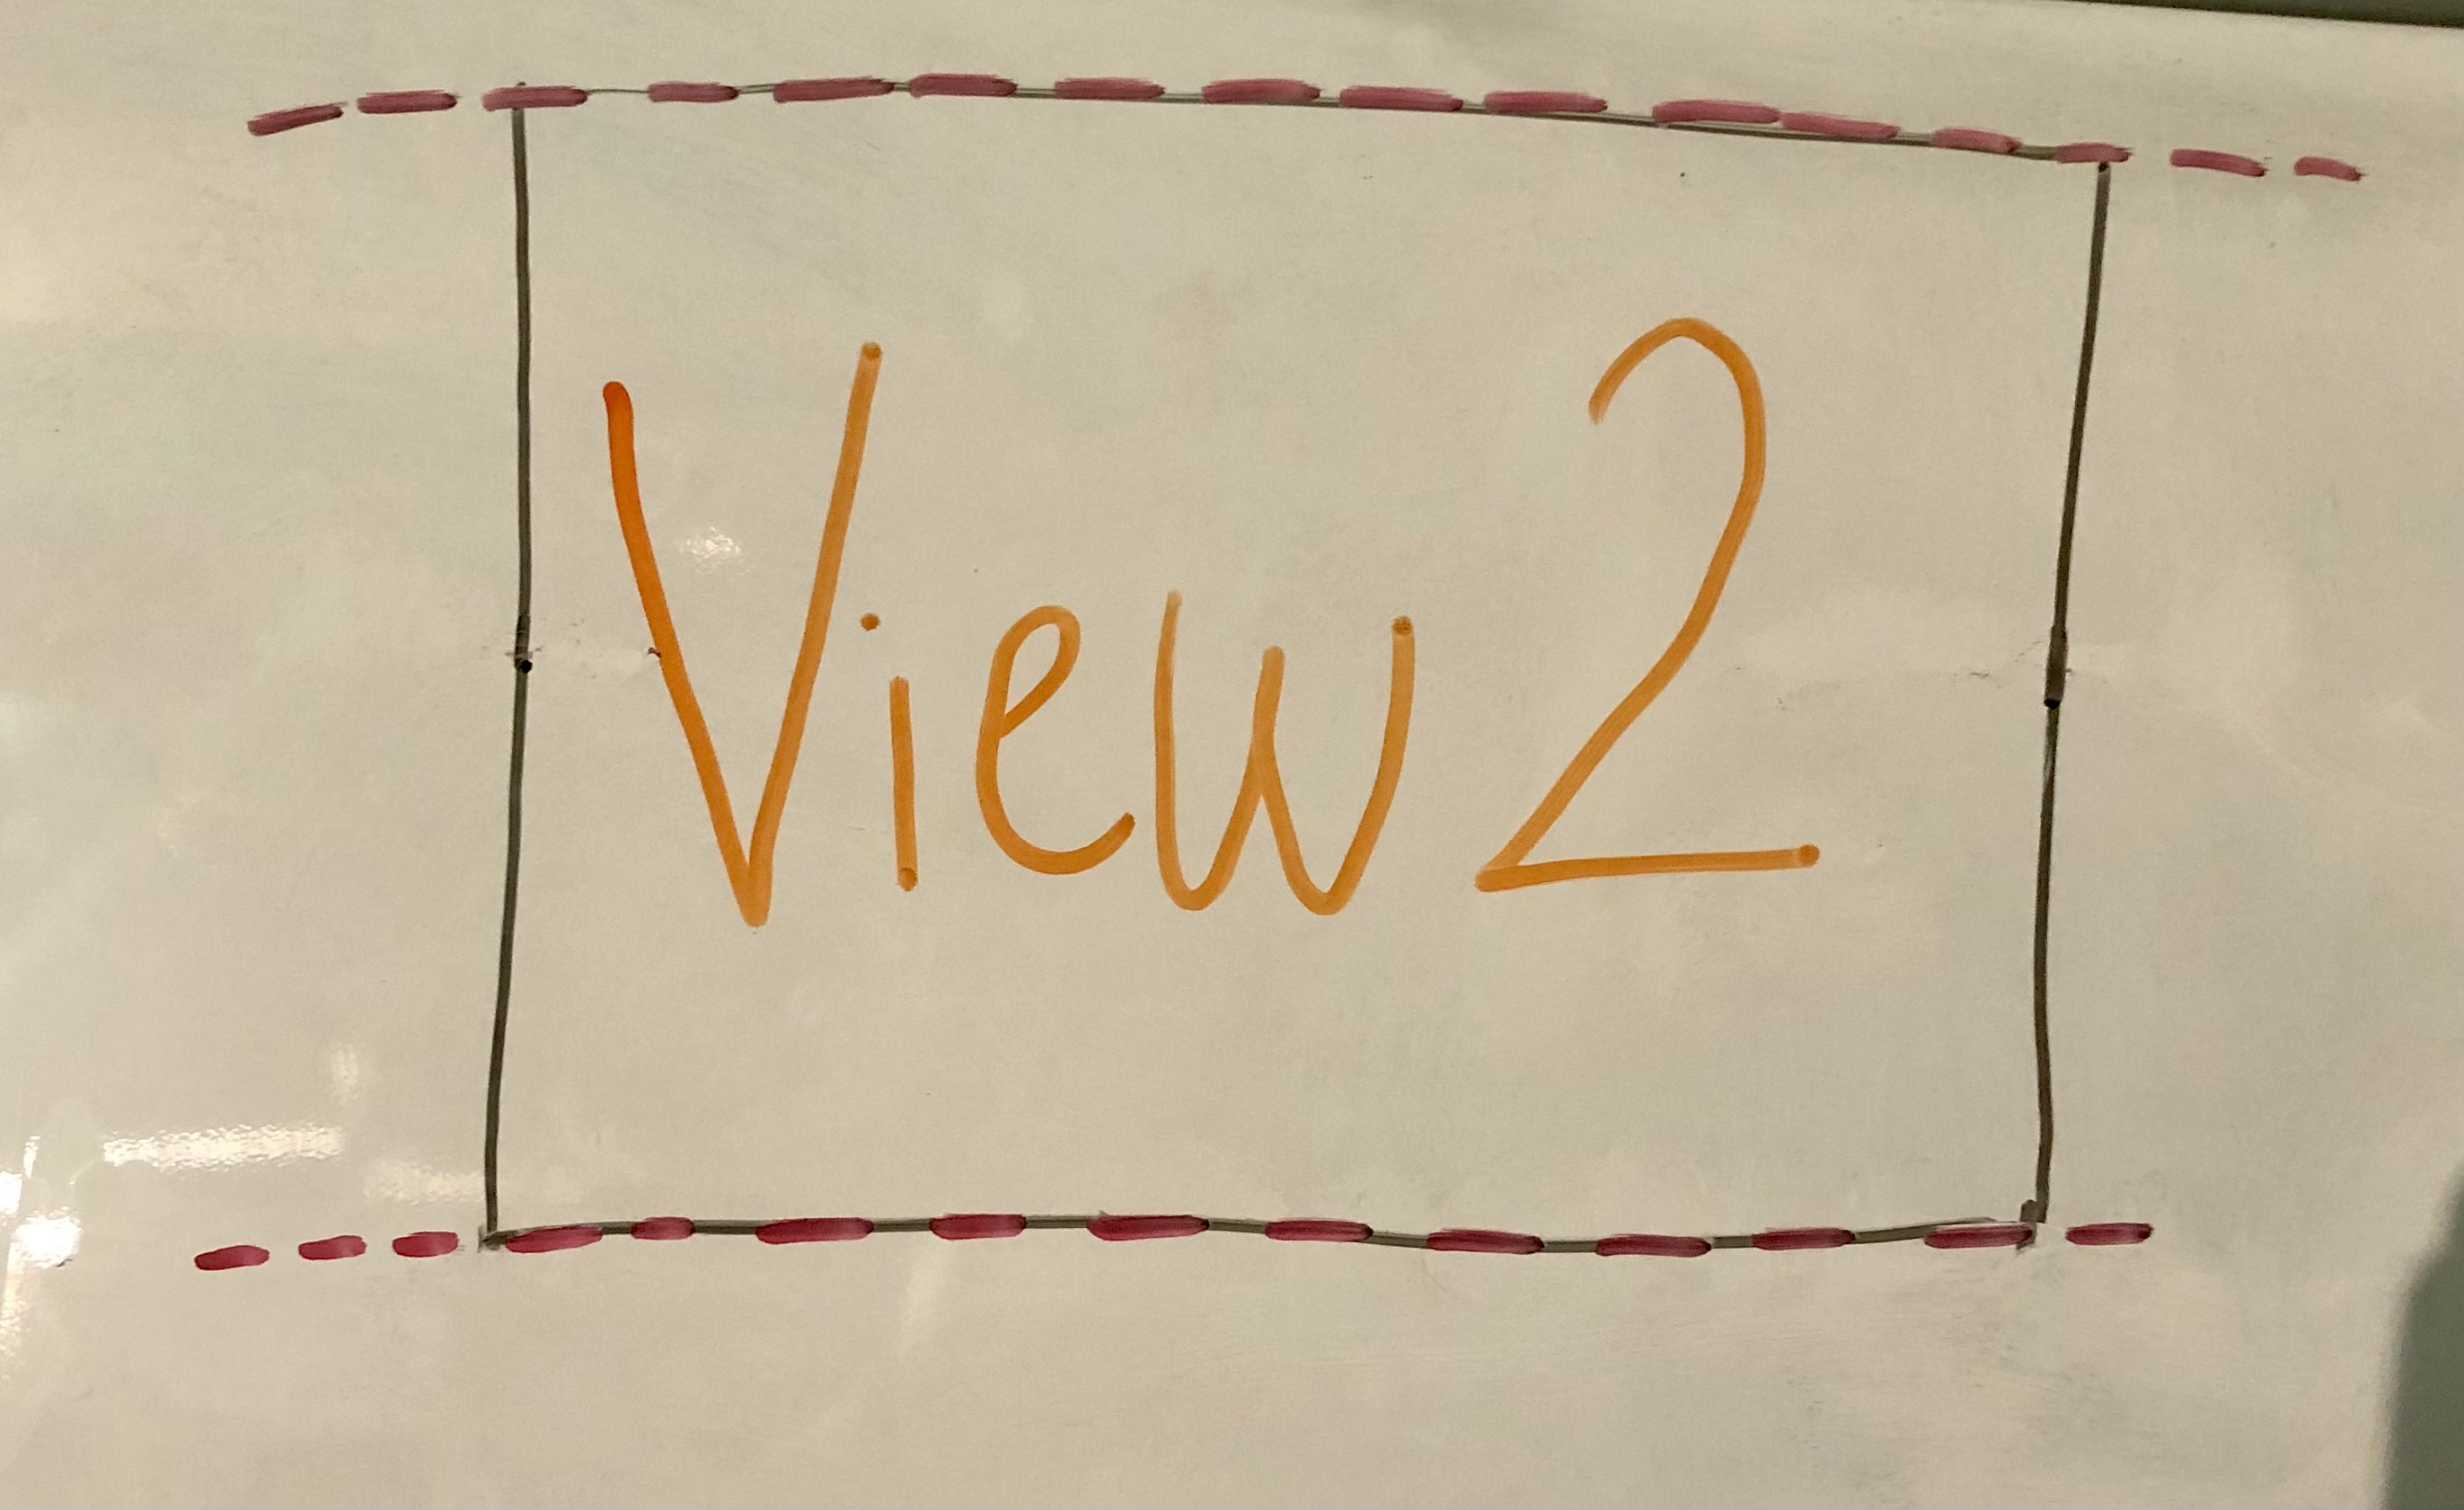 View 2